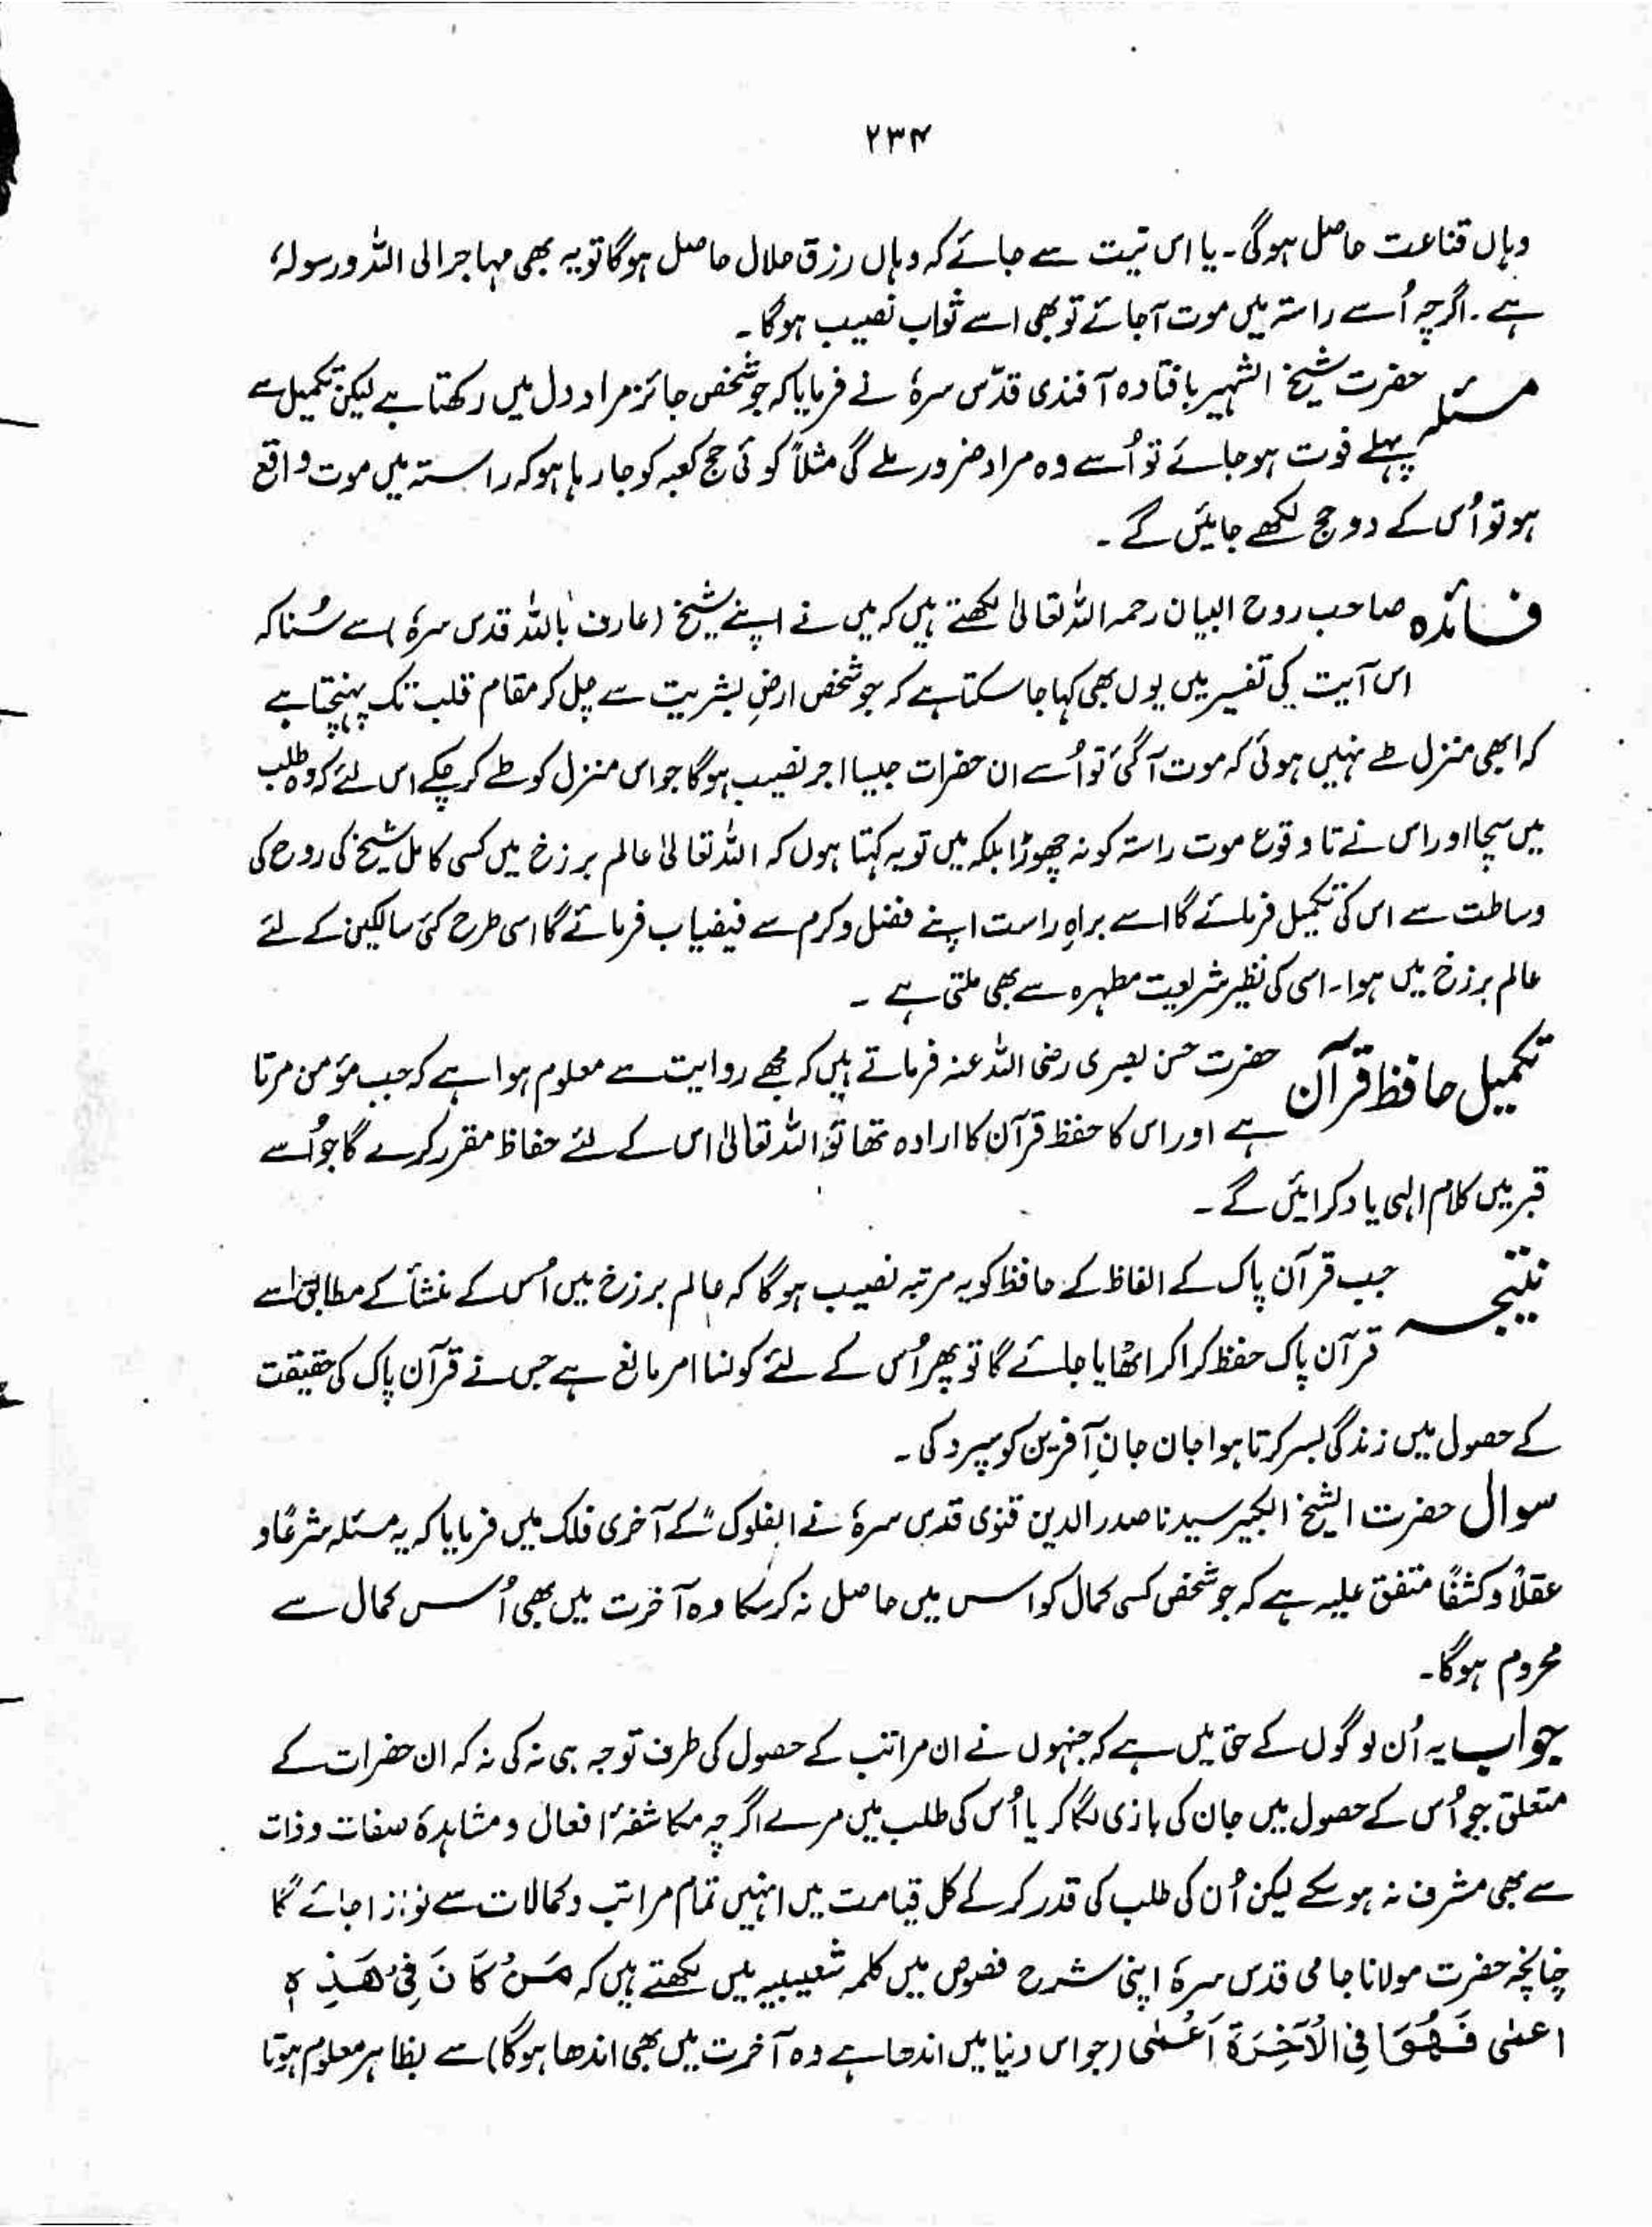 ۲۳۴
وہاں قناعت حاصل ہوگی۔ یا اس نیت سے جائے کہ وہاں رزق حلال حاصل ہوگا تو یہ بھی مہاجر الی اللہ ورسولہٗ
ہے۔ اگرچہ اُسے راستہ میں موت آجائے تو بھی اسے ثواب نصیب ہوگا۔
مسئلہ حضرت شیخ الشہیر بافتادہ آفندی قدّس سرہٗ نے فرمایا کہ جو شخص جائز مراد دل میں رکھتا ہے لیکن تکمیل سے
پہلے فوت ہو جائے تو اُسے وہ مراد ضرور ملے گی مثلاً کوئی حج کعبہ کو جا رہا ہو کہ راستہ میں موت واقع
ہو تو اُس کے دو حج لکھے جائیں گے۔
فائدہ صاحب روح البیان رحمہ اللہ تعالیٰ لکھتے ہیں کہ میں نے اپنے شیخ (عارف باللہ قدس سرہٗ) سے سُنا کہ
اس آیت کی تفسیر میں یوں بھی کہا جا سکتا ہے کہ جو شخص ارضِ بشریت سے چل کر مقام قلب تک پہنچتا ہے
کہ ابھی منزل طے نہیں ہوئی کہ موت آگئی تو اُسے ان حضرات جیسا اجر نصیب ہوگا جو اس منزل کو طے کر چکے اس لئے کہ وہ طلب
میں سچا اور اس نے تا وقوع موت راستہ کو نہ چھوڑا بلکہ میں تو یہ کہتا ہوں کہ اللہ تعالیٰ عالم برزخ میں کسی کامل شیخ کی روح کی
وساطت سے اس کی تکمیل فرمائے گا اسے براہِ راست اپنے فضل و کرم سے فیضیاب فرمائے گا اسی طرح کئی سالکین کے لئے
عالم برزخ میں ہوا۔ اسی کی نظیر شریعت مطہرہ سے بھی ملتی ہے ۔
تکمیل حافظ قرآن حضرت حسن بصری رضی اللہ عنہ فرماتے ہیں کہ مجھے روایت سے معلوم ہوا ہے کہ جب مؤمن مرتا
ہے اور اس کا حفظ قرآن کا ارادہ تھا تو اللہ تعالیٰ اس کے لئے حفاظ مقرر کرے گا جو اُسے
قبر میں کلام الٰہی یاد کرائیں گے۔
نتیجہ جب قرآن پاک کے الفاظ کے حافظ کو یہ مرتبہ نصیب ہوگا کہ عالم برزخ میں اُس کے منشأ کے مطابق اسے
قرآن پاک حفظ کرا کر اٹھایا جائے گا تو پھر اُس کے لئے کونسا امر مانع ہے جس نے قرآن پاک کی حقیقت
کے حصول میں زندگی بسر کرتا ہوا جان جانِ آفرین کو سپرد کی۔
سوال حضرت الشیخ الکبیر سیدنا صدر الدین قنوی قدس سرہٗ نے الفلوک" کے آخری فلک میں فرمایا کہ یہ مسئلہ شرعًا و
عقلاً و کشفًا متفق علیہ ہے کہ جو شخص کسی کمال کو اس میں حاصل نہ کر سکا وہ آخرت میں بھی اُس کمال سے
محروم ہوگا۔
جواب یہ اُن لوگوں کے حق میں ہے کہ جنہوں نے ان مراتب کے حصول کی طرف توجہ ہی نہ کی نہ کہ ان حضرات کے
متعلق جو اُس کے حصول میں جان کی بازی لگا کر یا اُس کی طلب میں مرے اگرچہ مکاشفۂ افعال و مشاہدۂ صفات و ذات
سے بھی مشرف نہ ہو سکے لیکن اُن کی طلب کی قدر کر کے کل قیامت میں انہیں تمام مراتب و کمالات سے نوازا جائے گا
چنانچہ حضرت مولانا جامی قدس سرہٗ اپنی شرح فصوص میں کلمہ شعیبیہ میں لکھتے ہیں کہ مَنْ كَانَ فِیْ هَذِهٖ
اعمٰی فَهُوَ فِی الْاٰخِرَۃِ اَعْمٰی (جو اس دنیا میں اندھا ہے وہ آخرت میں بھی اندھا ہوگا) سے بظاہر معلوم ہوتا